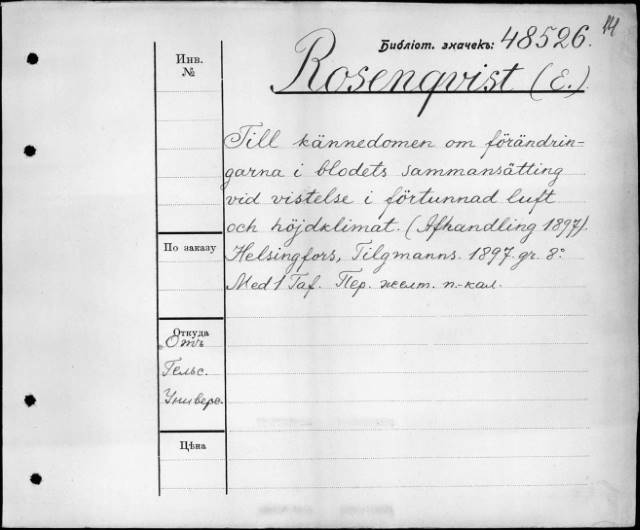 Библіот. значекъ: 48526.
Rosenqvist (E.)
Инв.
№
Till kännedomen om förändrin-
garna i blodets sammansätting
vid vistelse i förtunnad luft
och höjdklimat. (Afhandling 1897).
Helsingfors, Tilgmanns. 1897. gr. 8°
Med 1 Taf. Пер. желт. п.-кал.
По заказу
Откуда
Отъ
Гельс.
Универс.
Цѣна